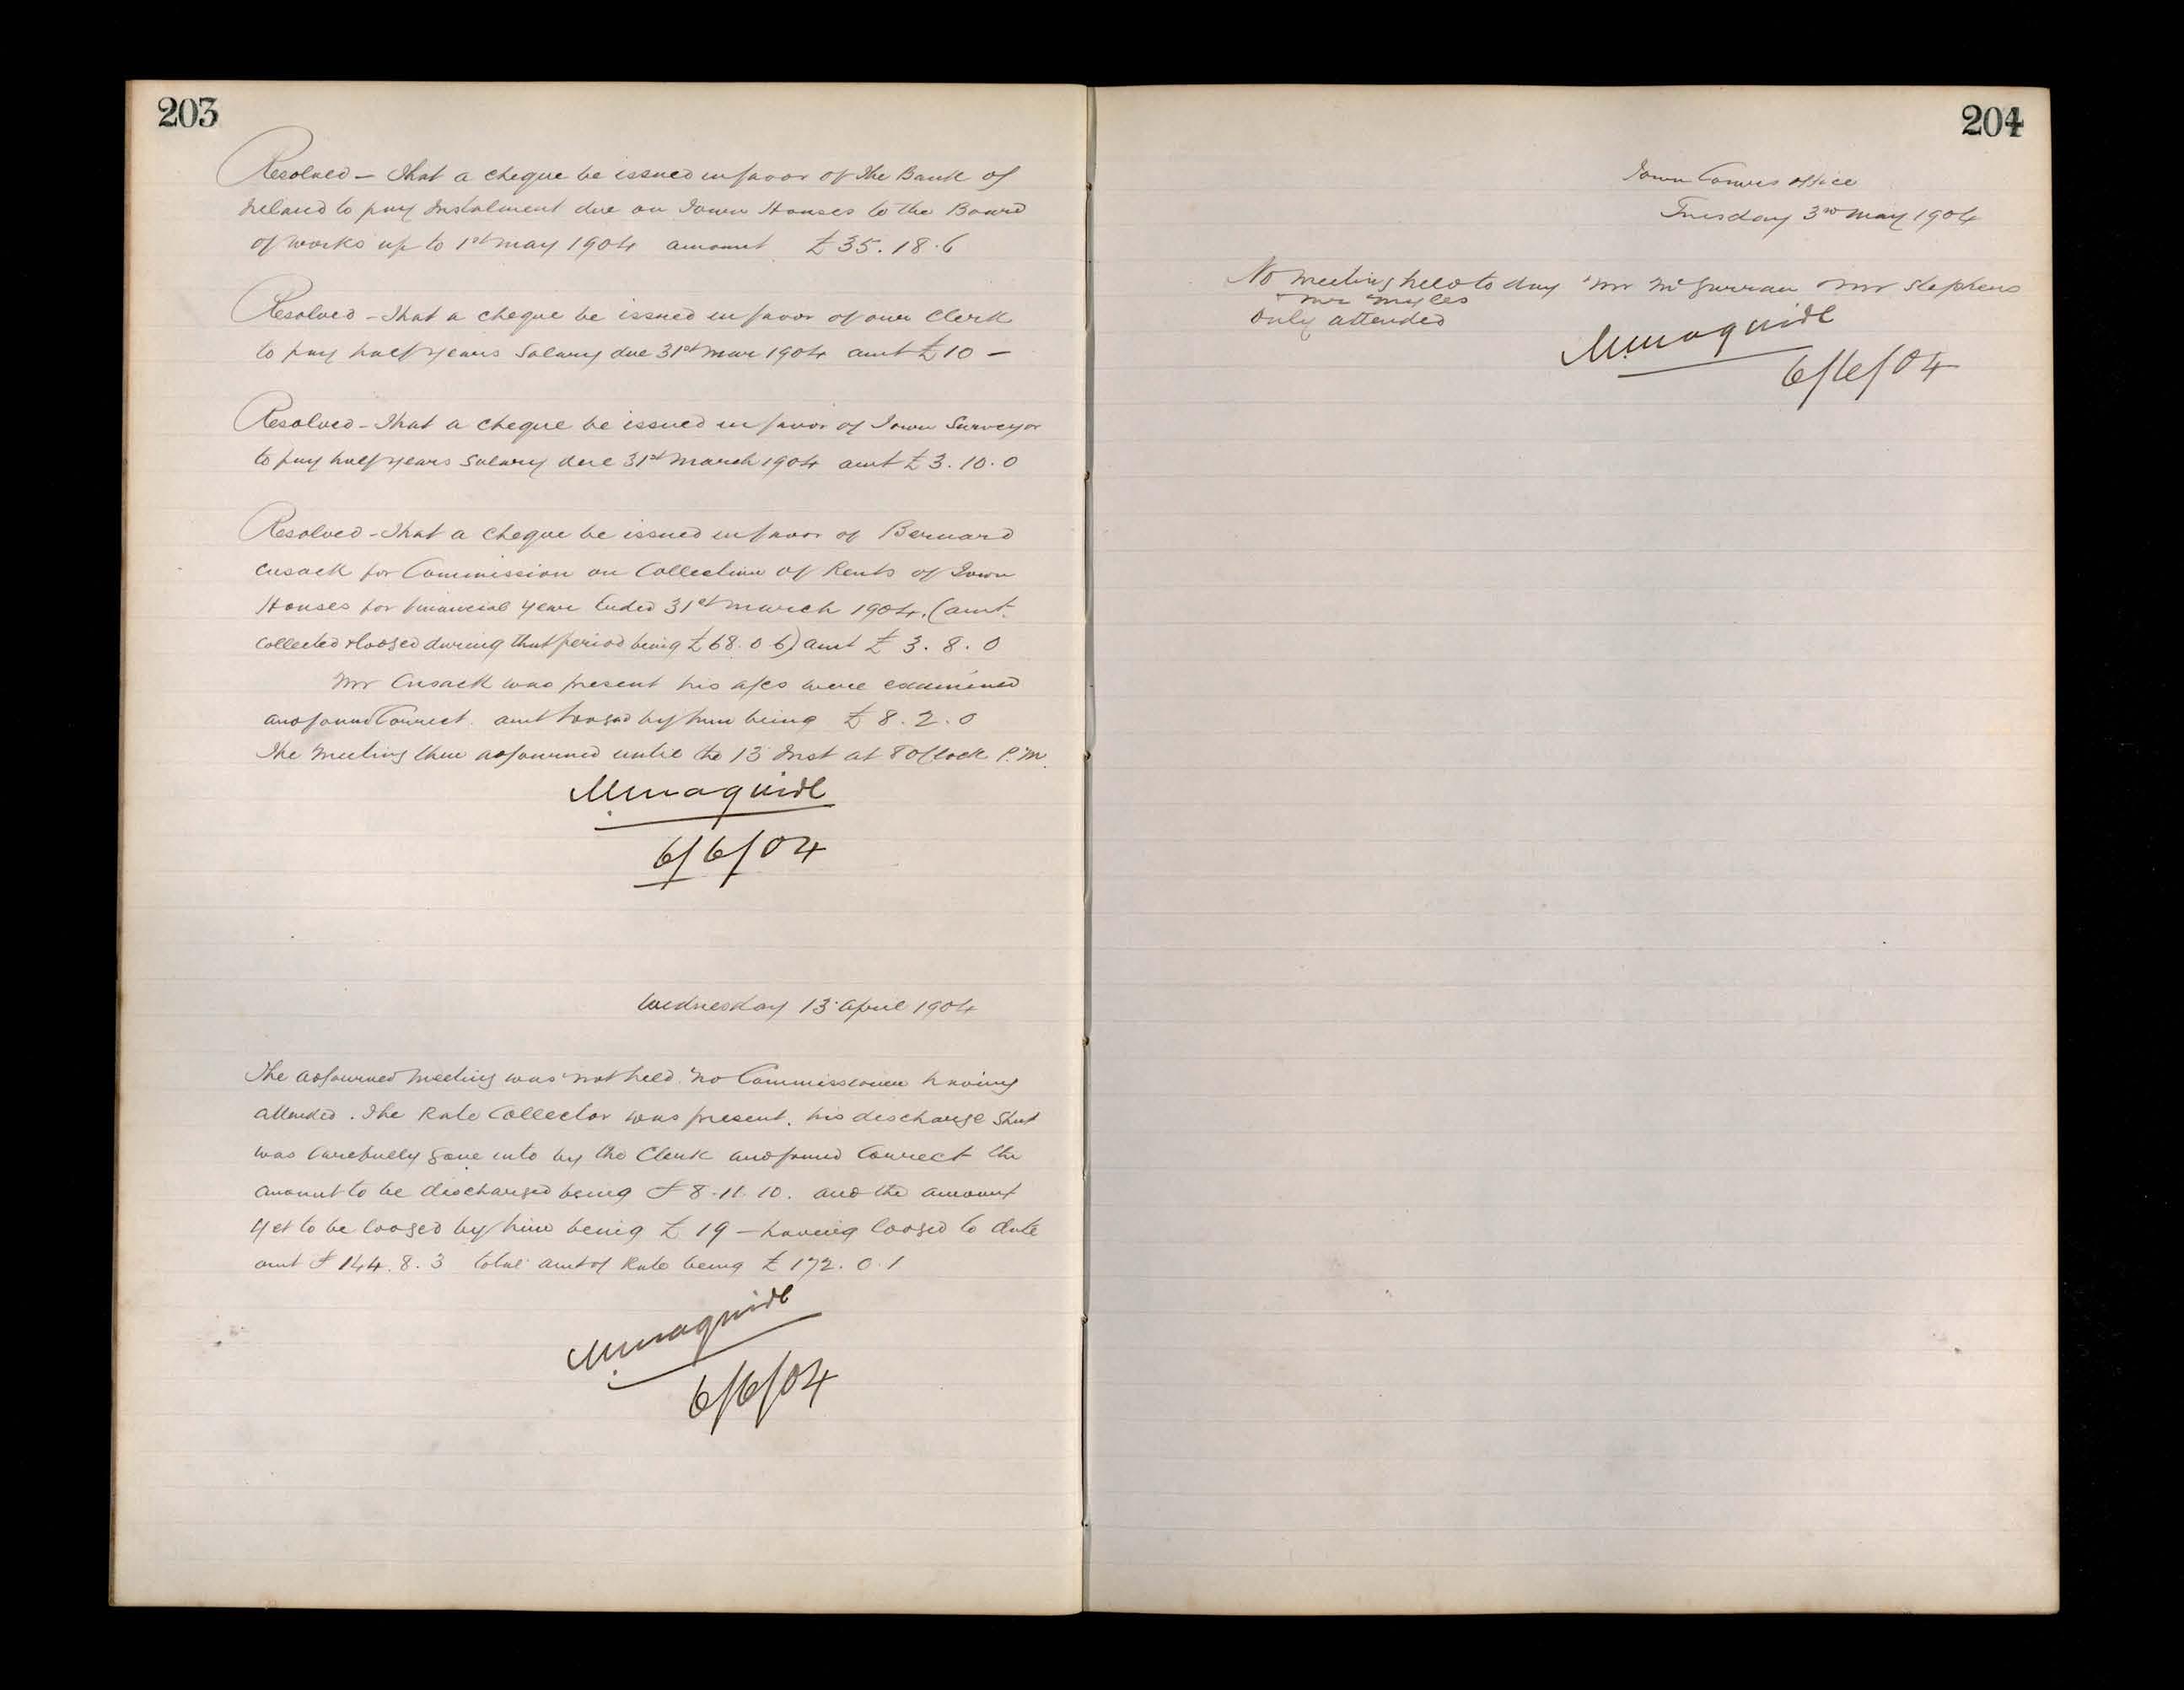 203
Resolved – That a cheque be issued in favor of the Bank of
Ireland to pay Instalment due on Town Houses to the Board
of works up to 1st may 1904 amount £35.18.6
Resolved – That a cheque be issued in favor of our Clerk
to pay half years Salary due 31st mar 1904 amt £10 –
Resolved – That a cheque be issued in favor of Town Surveyor
to pay half years Salary due 31st March 1904 amt £3.10.0
Resolved – That a cheque be issued in favor of Bernard
Cusack for Commission on Collection of Rents of Town
Houses for financial year Ended 31st March 1904. (amt.
Collected & lodged during that period being £68.0.6) amt £3.8.0
Mr Cusack was present his a/cs were examined
and found Correct. amt lodged by him being £8.2.0
The Meeting then adjourned until the 13 Inst at 8 OClock P.M.
6/6/04
Wednesday 13 April 1904
The adjourned meeting was not held. no Commissioner having
attended. The Rate Collector was present. his discharge Sheet
was Carefully gone into by the Clerk and found Correct the
amount to be discharged being £8.11.10. and the amount
yet to be lodged by him being £19 – having lodged to date
amt £144.8.3 total amt of Rate being £172.0.1
6/6/04
204
Town Comrs office
Tuesday 3rd May 1904
No meeting held to day Mr McGurran Mr Stephens
Mr Myles
only attended
6/6/04